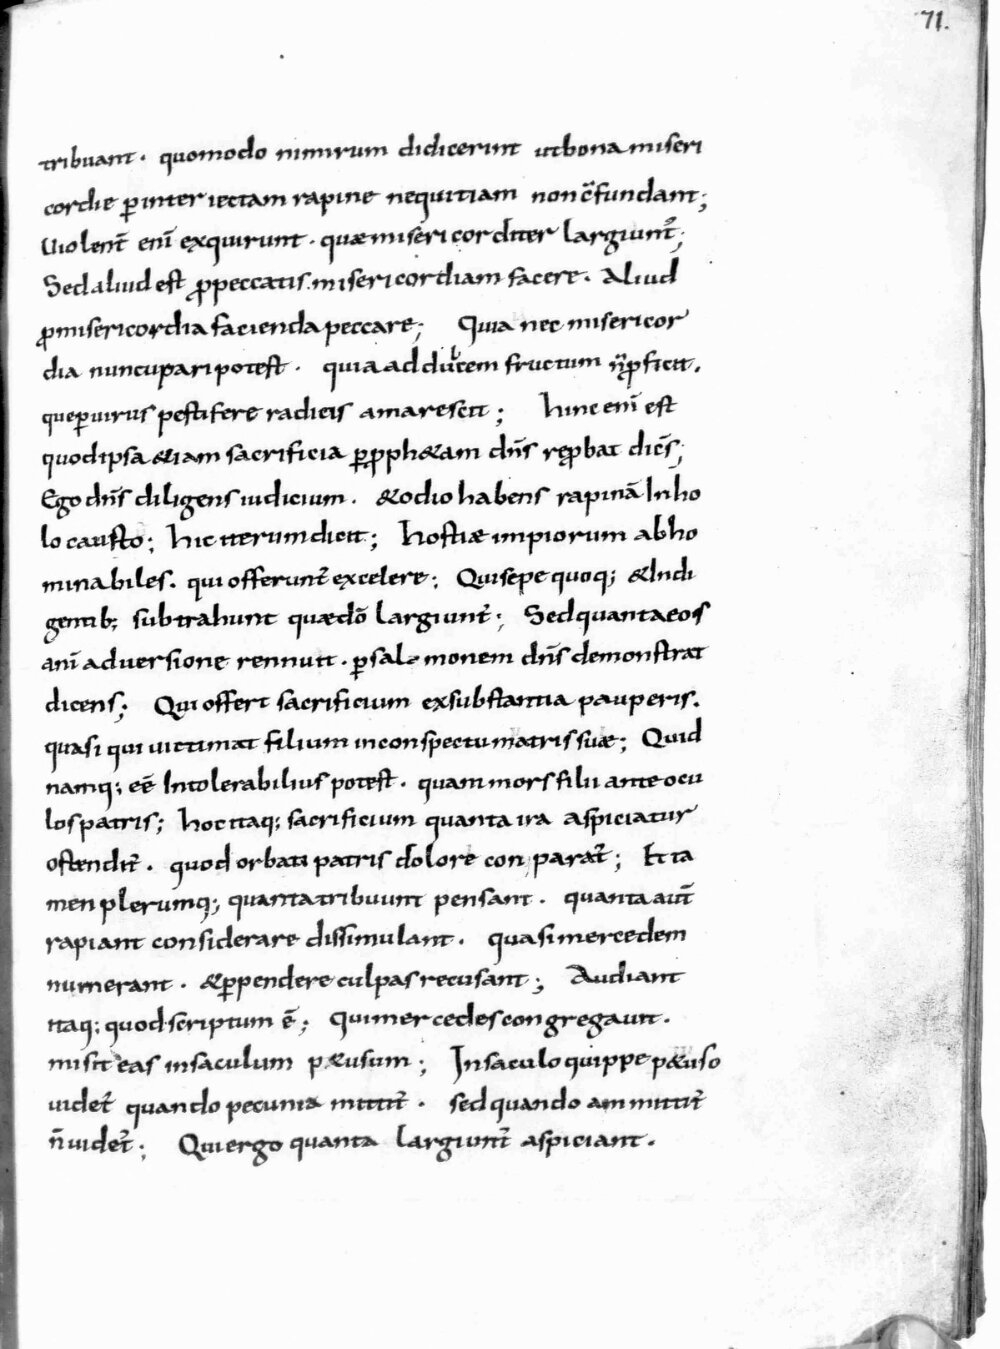 71.
tribuant. quomodo nimirum didicerint ut bona miseri
cordie p̱ inter iectam rapine nequitiam non c̄fundant;
Uiolent̄ eni͞ exquirunt. quæ misericorditer largiunt̄;
Sed aliud est ꝓ peccatis misericordiam facere. Aliud
ꝓ misericordia facienda peccare; Quia nec misericor
dia nuncupari potest. quia ad dulcem fructum n̄ ꝓficit.
que ꝑ uirus pestifere radicis amarescit; Hinc eni͞ est
quod ipsa &iam sacrificia ꝑ ꝓph&am dn̄s reꝓbat dicēs;
Ego dn̄s diligens iudicium. & odio habens rapinā In ho
locausto; hic iterum dicit; Hostiæ impiorum abho
minabiles. qui offerunt̄ ex celere; Qui sepe quoq; & Indi
gentib; subtrahunt quæ dō largiunt̄; Sed quanta eos
ani͞ aduersione rennuit. ꝑ salomonem dn̄s demonstrat
dicens; Qui offert sacrificium ex substantia pauperis.
quasi qui uictimat filium in conspectu matris suæ; Quid
namq; eē Intolerabilius potest. quam mors filii ante ocu
los patris; hoc itaq; sacrificium quanta ira aspiciatur
ostendit̄. quod orbati patris dolore conparat̄; Et ta
men plerumq; quanta tribuunt pensant. quanta aut̄
rapiant considerare dissimulant. quasi mercedem
numerant. & ꝑpendere culpas recusant; Audiant
itaq; quod scriptum ē; Qui mercedes congregauit.
misit eas in saculum p&usum; In saculo quippe p&uso
uidet̄ quando pecunia mittit̄. sed quando ammittit̄
n̄ uidet̄; Qui ergo quanta largiunt̄ aspiciant.